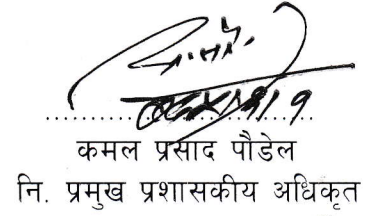 कमल प्रसाद पौडेल
नि. प्रमुख प्रशासकीय अधिकृत